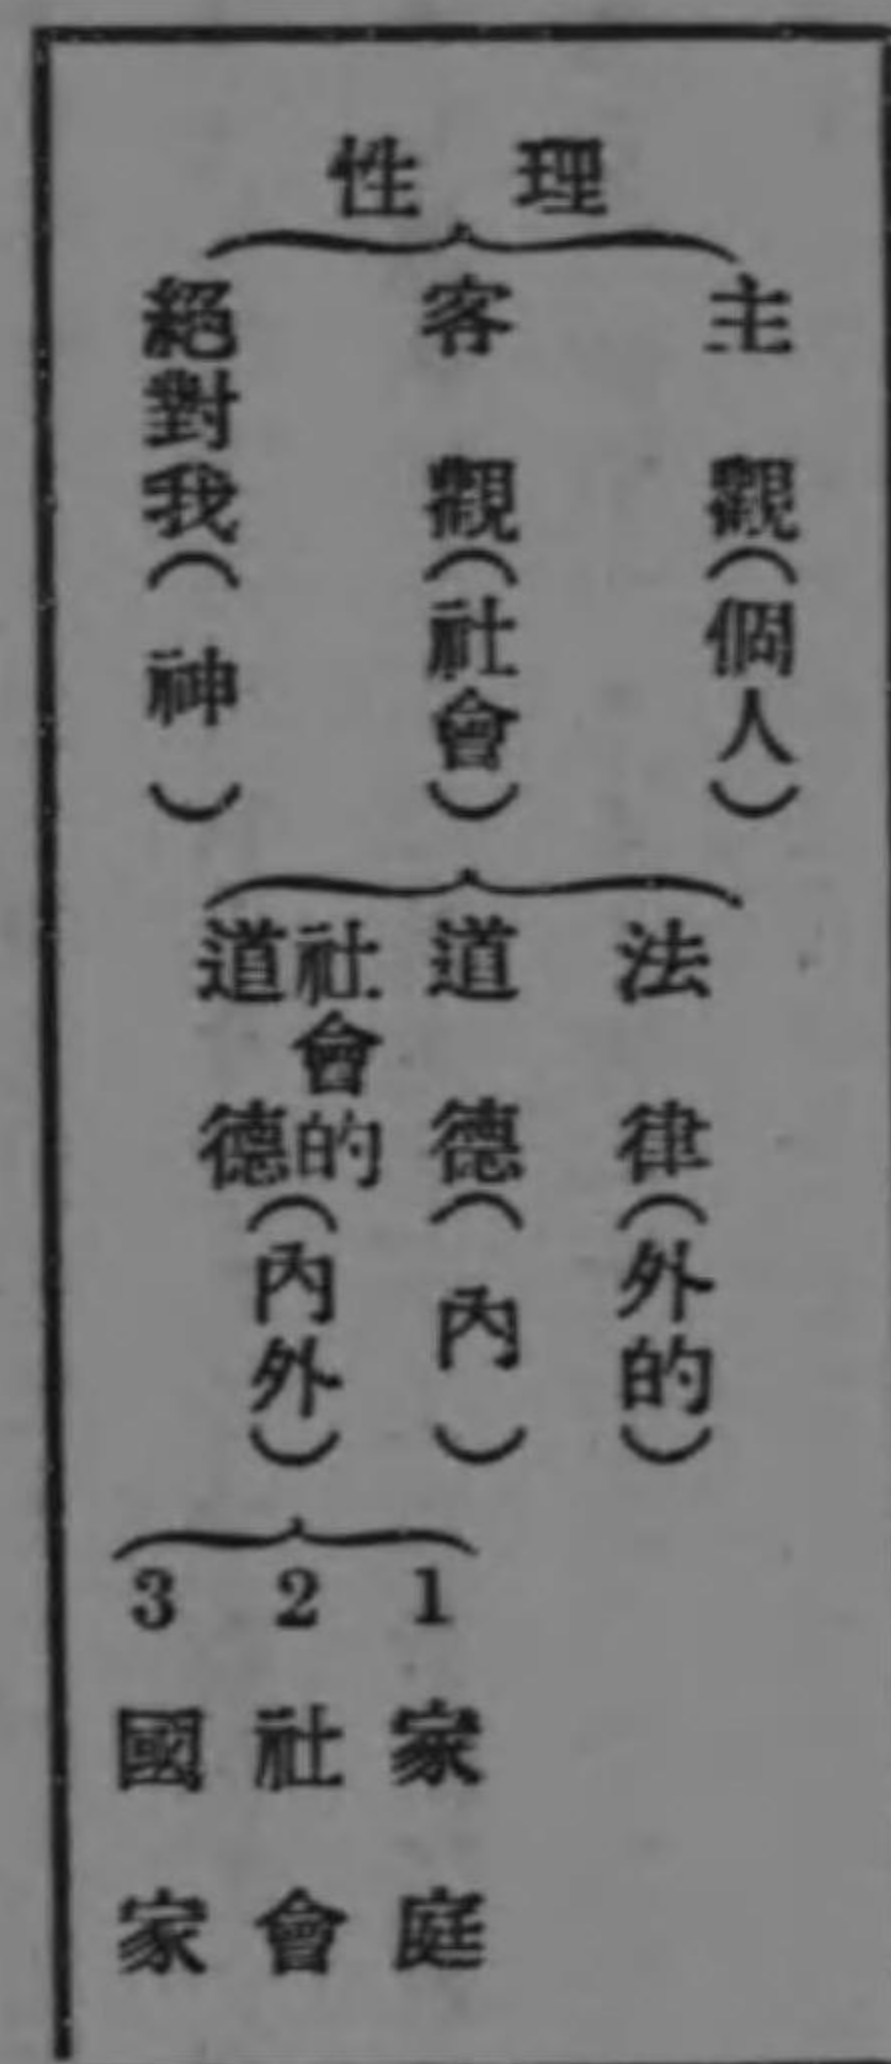 理性
主觀(個人)
客觀(社會)
絕對我(神)
法律(外的)
道德(內)
社會的道德(內外)
1家庭
2社會
3國家